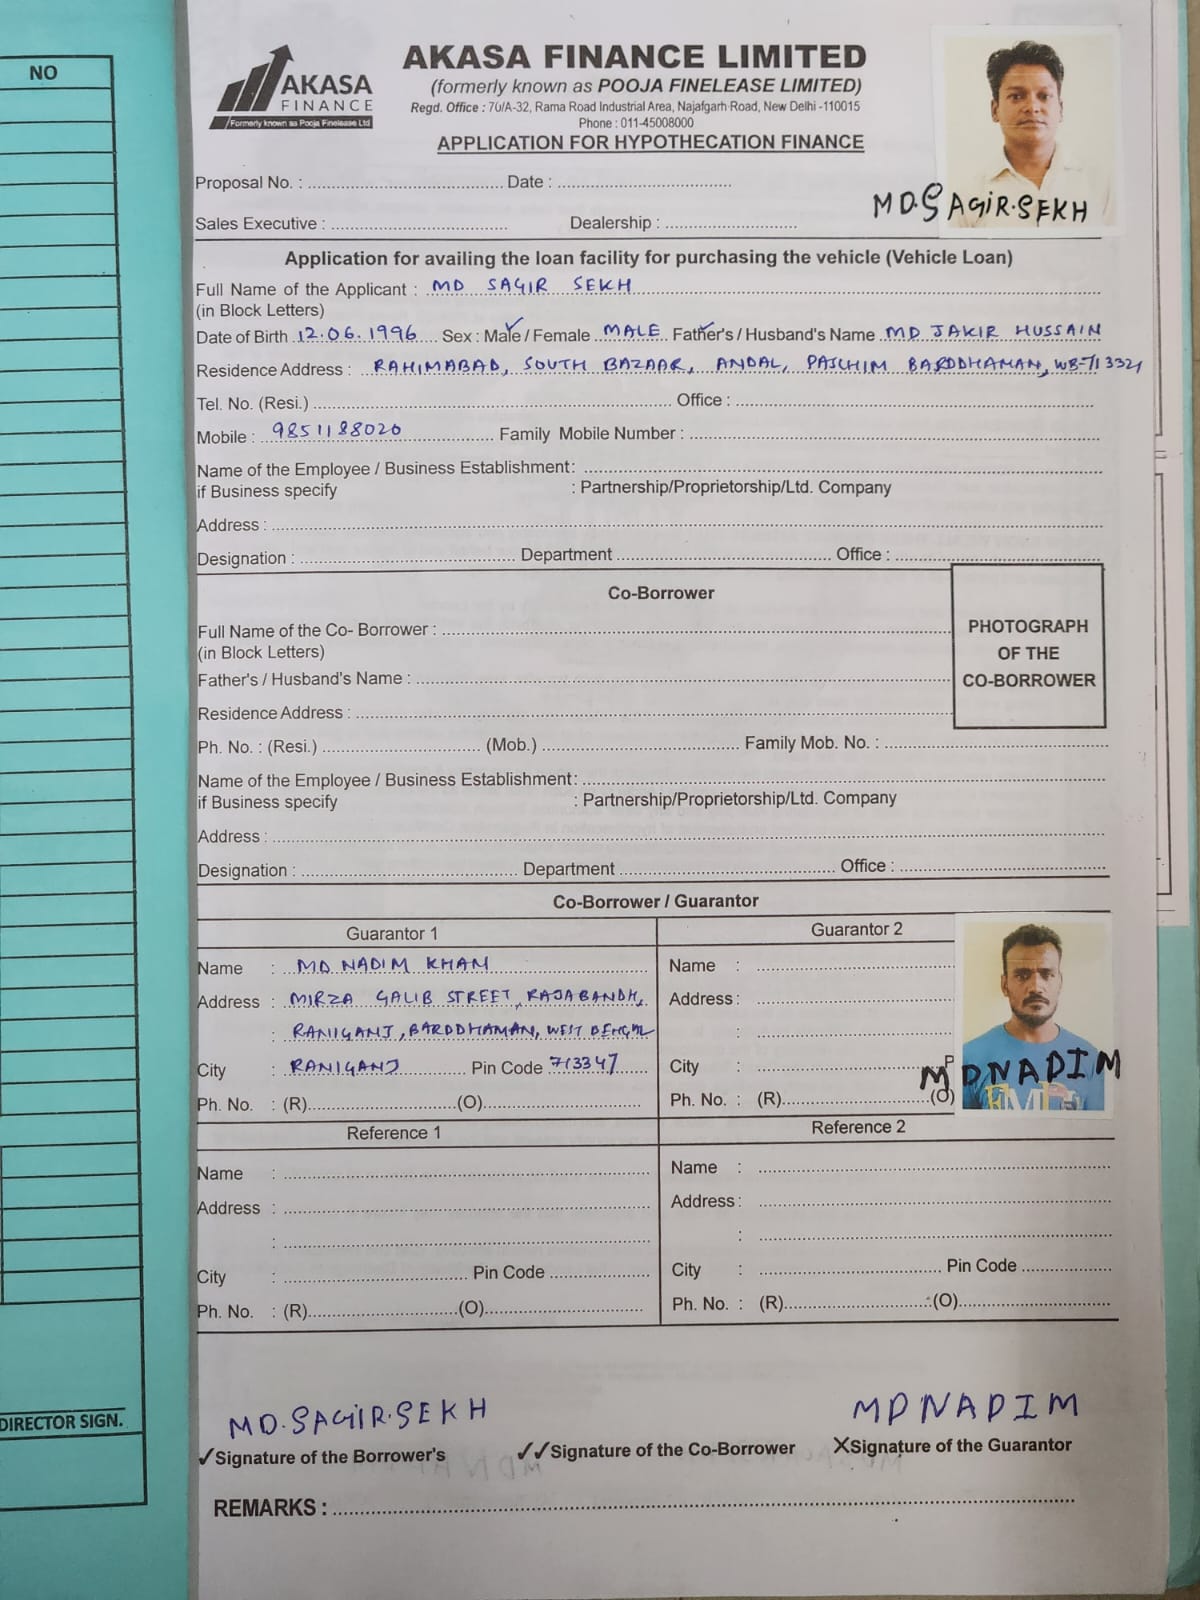 NO
AKASA
FINANCE
Formerly known as Pooja Finelease Ltd
AKASA FINANCE LIMITED
(formerly known as POOJA FINELEASE LIMITED)
Regd. Office : 70/A-32, Rama Road Industrial Area, Najafgarh Road, New Delhi -110015
Phone : 011-45008000
APPLICATION FOR HYPOTHECATION FINANCE
Proposal No. : Date :
MD.SAGIR.SEKH
Sales Executive : Dealership :
Application for availing the loan facility for purchasing the vehicle (Vehicle Loan)
Full Name of the Applicant : MD SAGIR SEKH
(in Block Letters)
Date of Birth 12.06.1996 Sex : Male / Female MALE Father's / Husband's Name MD JAKIR HUSSAIN
Residence Address : RAHIMABAD, SOUTH BAZAAR, ANDAL, PASCHIM BARDDHAMAN, WB-713321
Tel. No. (Resi.) Office :
Mobile : 9851188020 Family Mobile Number :
Name of the Employee / Business Establishment:
if Business specify : Partnership/Proprietorship/Ltd. Company
Address :
Designation : Department Office :
Co-Borrower
Full Name of the Co- Borrower :
(in Block Letters)
PHOTOGRAPH
OF THE
CO-BORROWER
Father's / Husband's Name :
Residence Address :
Ph. No. : (Resi.) (Mob.) Family Mob. No. :
Name of the Employee / Business Establishment:
if Business specify : Partnership/Proprietorship/Ltd. Company
Address :
Designation : Department Office :
Co-Borrower / Guarantor
Guarantor 1
Name : MD NADIM KHAM
Address : MIRZA GALIB STREET, RAJABANDH,
: RANIGANJ, BARDDHAMAN, WEST BENGAL
City : RANIGANJ Pin Code 713347
Ph. No. : (R) (O)
Guarantor 2
Name :
Address :
:
City : P
MDNADIM
Ph. No. : (R) (O)
Reference 1
Name :
Address :
:
City : Pin Code
Ph. No. : (R) (O)
Reference 2
Name :
Address :
:
City : Pin Code
Ph. No. : (R) (O)
MD.SAGIR.SEKH
MDNADIM
DIRECTOR SIGN.
✓Signature of the Borrower's ✓✓Signature of the Co-Borrower XSignature of the Guarantor
REMARKS :